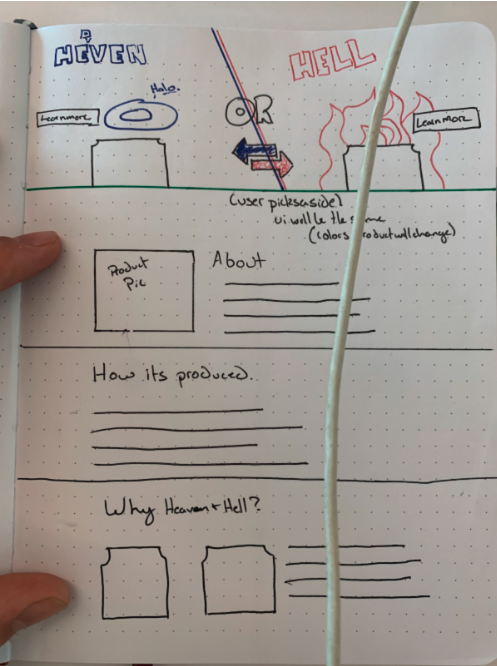 HEVEN
a
HELL
Halo.
Learn more
OR
Learn More
(user picks a side)
ui will be the same
(colors product will change)
Product
Pic
About
How its produced.
Why Heaven + Hell?